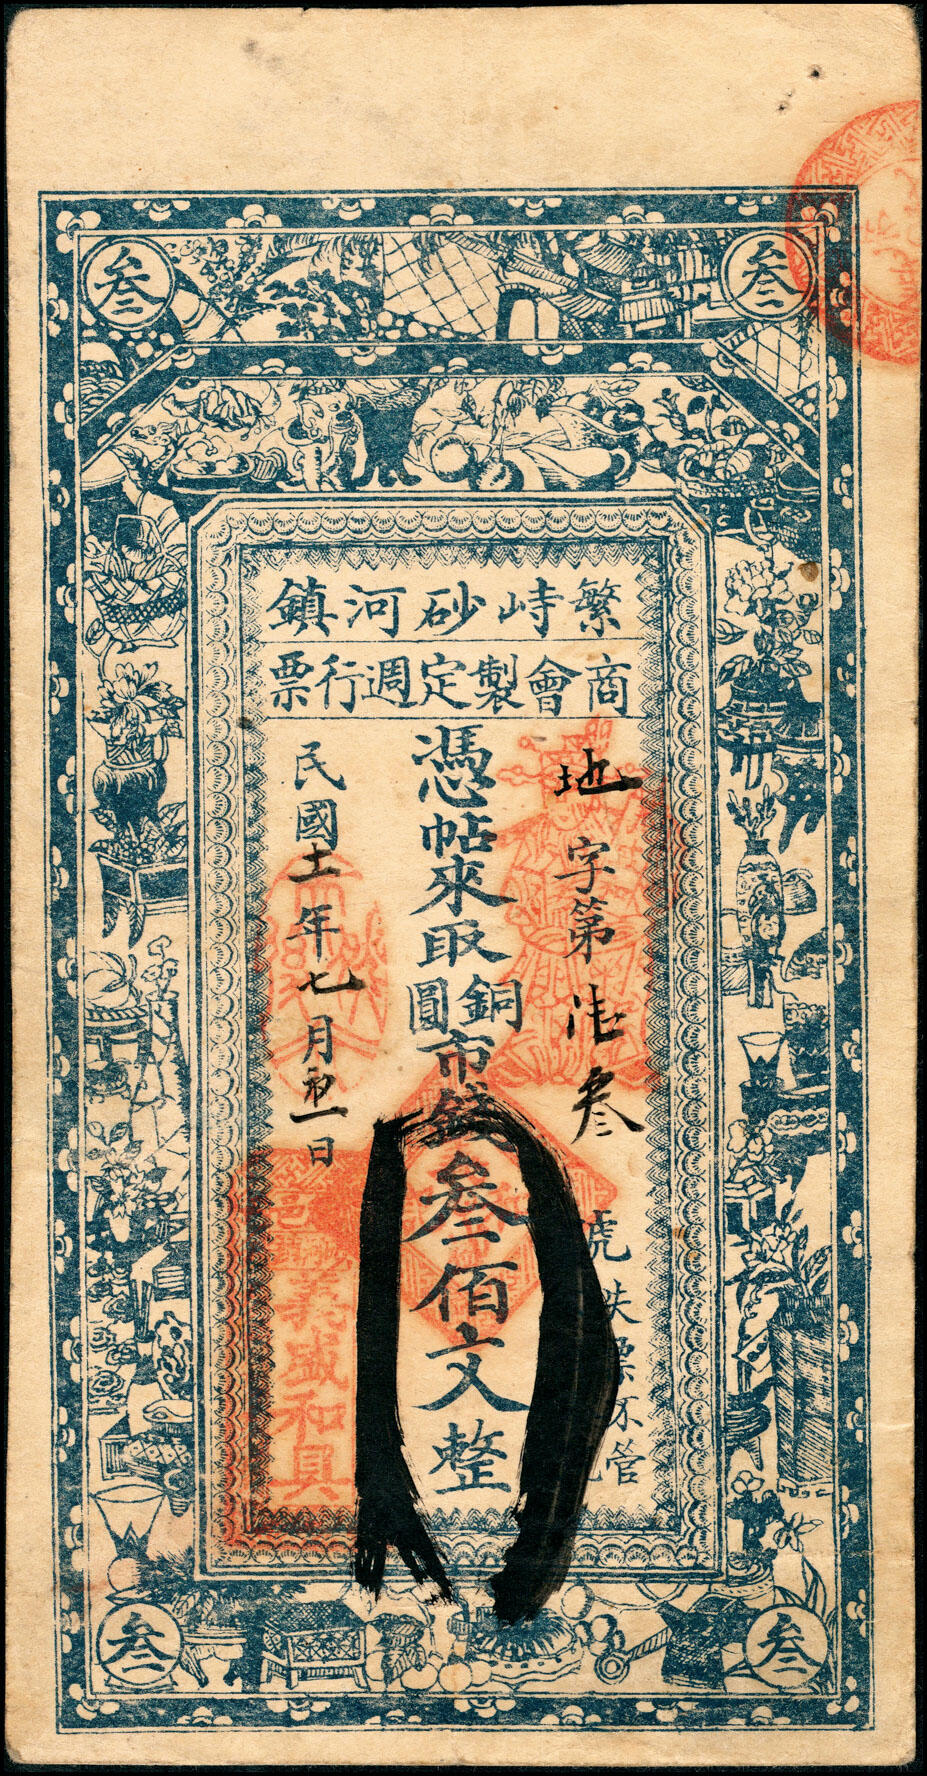 叁 叁
繁峙砂河鎮
商會製定週行票
地字第陆叁號失票不管
憑帖來取銅圓市錢叁佰文整
民國十一年七月初一日
義盛和具
叁 叁